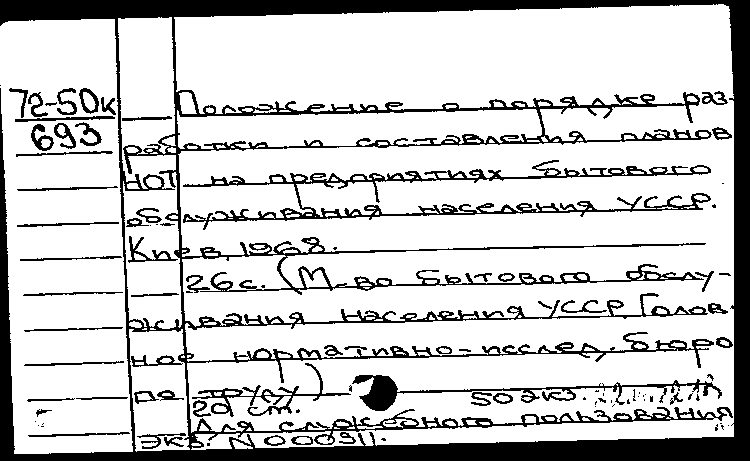 72-50к
693
Положение о порядке раз-
работки и составления планов
НОТ на предприятиях бытового
обслуживания населения УССР.
Киев, 1968.
26с. (М-во бытового обслу-
живания населения УССР. Голов-
ное нормативно-исслед. бюро
по труду)
50 экз.
20 см.
Для служебного пользования
экз. N 000311.